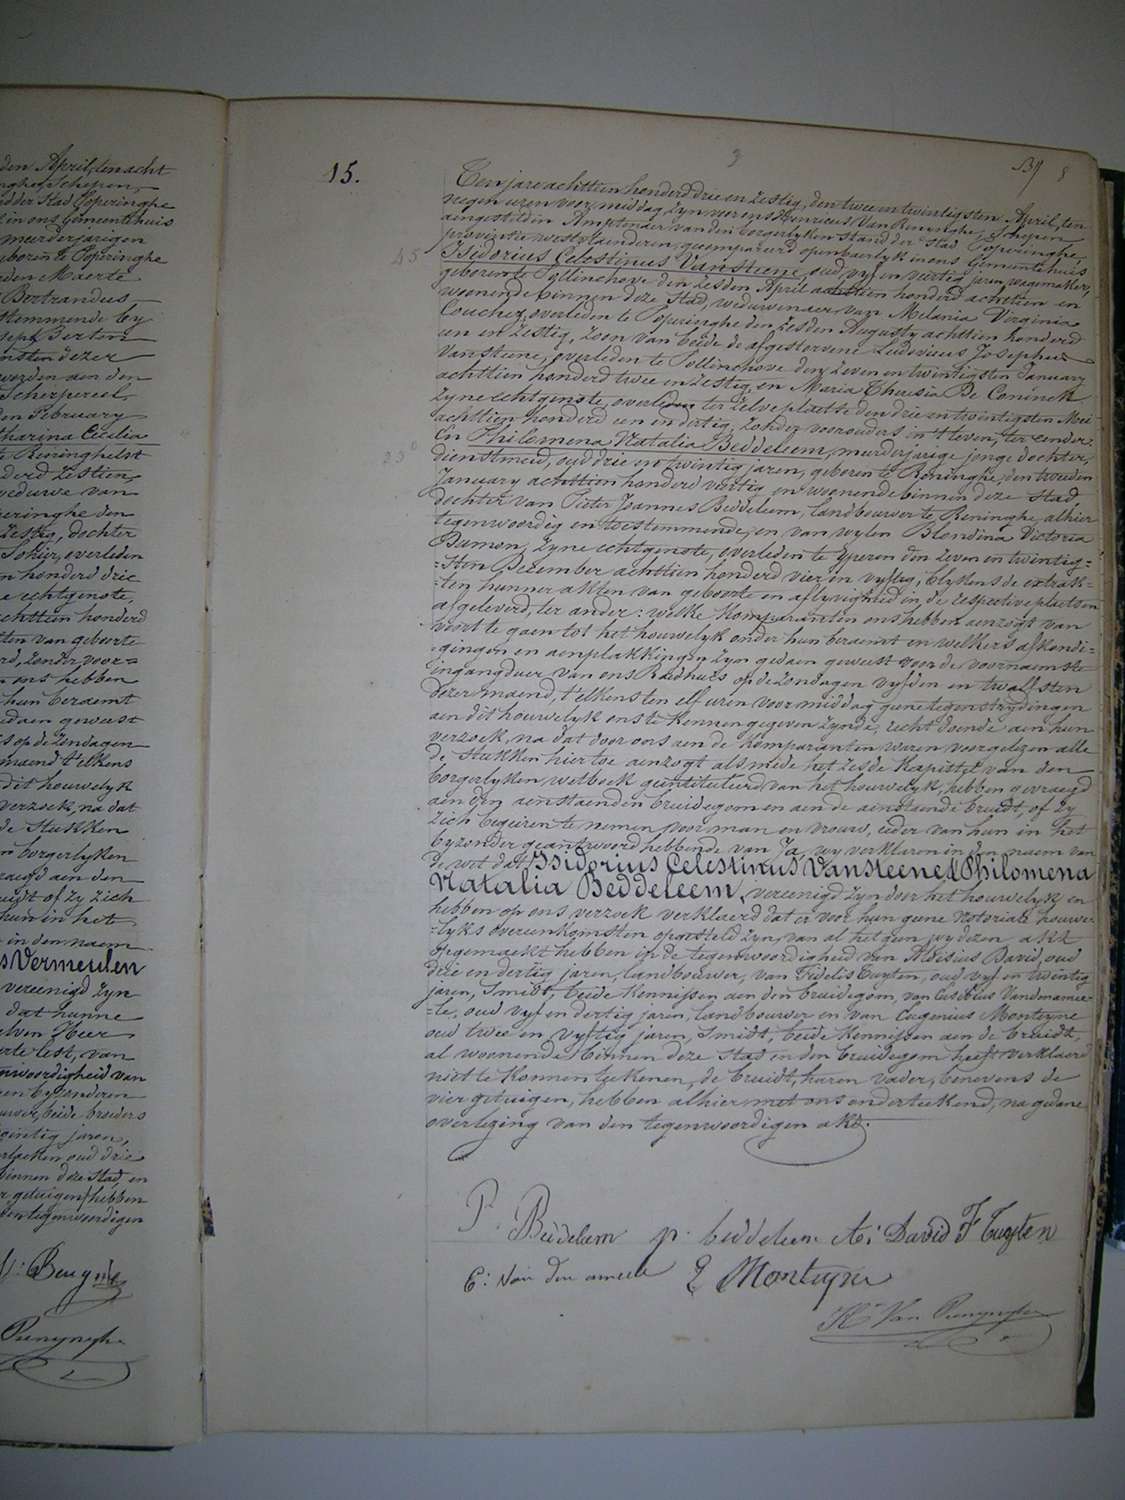 den April, ten acht
Schepen,
der Stad Poperinghe
in ons Gemeentehuis
meerderjarigen
geboren te Poperinghe
den Maerte
Bertrandus,
stemmende by
Joseph Berton
insten dezer
worden aen den
Scherpereel,
den February
tharina Cecilia
te Reninghelst
derd Zestien,
weduwe van
peringhe den
Zestig, dochter
Sohier, overleden
n honderd drie
e echtgenote,
achttien honderd
ten van geboorte
rd, zonder voor=
ons hebben
hun beraemt
edaen geweest
s op de Zondagen
maend t'elkens
dit houwelyk
verzoek, na dat
de Stukken
n borgerlyken
raegd aen den
uidt of zy zich
hun in het
in den naem
s Vermeulen
vereenigd zyn
dat hunne
elven Heer
erte lest, van
nwoordigheid van
en byzonderen
uwer, beide broeders
gentig jaren,
oud drie
binnen deze Stad, en
r getuigen hebben
den tegenwoordigen
3
139
15.
Ten jare achttien honderd drie en Zestig, den twee en twintigsten April, ten
negen uren voor middag, zyn voor ons Henricus Van Renynghe, Schepen
aengestelden Amptender van den borgerlyken Stand der Stad Poperinghe,
provintie westvlaenderen, gecompareerd openbaerlyk in ons Gemeentehuis
45 Isidorius Celestinus Vansteene, oud vyf en veertig jaren, wagemaker,
geboren te Pollinchove den zesden April achttien honderd achttien en
woonende binnen deze Stad, weduwenaer van Melania Virginia
Couchez, overleden te Poperinghe den zesden Augusty achttien honderd
een en zestig, zoon van beide de afgestorvene Ludovicus Josephus
Vansteene, overleden te Pollinchove den zeven en twintigsten January
achttien honderd twee en zestig, en Maria Theresia De Coninck
zyne echtgenote, overleden ter zelve plaetse den drie en twintigsten Mei
achttien honderd een en dertig, zonder voorouders in 't leven, ter eender,
En Philomena Natalia Beddeleem, meerderjarige jonge dochter,
23 dienstmeid, oud drie en twintig jaren, geboren te Reninghe, den tweeden
January achttien honderd veertig en woonende binnen deze stad,
dochter van Pieter Joannes Beddeleem, landbouwer te Reninghe, alhier
tegenwoordig en toestemmende, en van wylen Blondina Victoria
Damon, zyne echtgenote, overleden te Yperen den zeven en twintig=
=sten December achttien honderd vier en vyftig, blykens de extrak=
=ten hunner akten van geboorte en aflyvigheid in de respective plaetsen
afgeleverd, ter ander: welke komparanten ons hebben aenzogt van
voort te gaen tot het houwelyk onder hun beraemt en welkers afkondi=
gingen en aenplakkingen zyn gedaen geweest voor de voornaemste
ingangdeur van ons Raedhuis op de zondagen vyfden en twalfsten
dezer maend, t'elkens ten elf uren voor middag geene tegenstrydingen
aen dit houwelyk ons te kennen gegeven zynde, recht doende aen hun
verzoek, na dat door ons aen de komparanten waren voorgelezen alle
de Stukken hier toe aenzogt als mede het zesde kapittel van den
borgerlyken wetboek geintituleerd van het houwelyk, hebben gevraegd
aen den aenstaenden bruidegom en aen de aenstaende bruidt, of zy
zich begeiren te nemen voor man en vrouw, ieder van hun in het
byzonder geantwoord hebbende van Ja, wy verklaren in den naem van
de wet dat Isidorius Celestinus Vansteene & Philomena
Natalia Beddeleem, vereenigd zyn door het houwelyk en
hebben op ons verzoek verklaerd dat er voor hun geene notoriale houwe=
=lyks overeenkomsten opgesteld zyn, van al het gen wy dezen akt
opgemaekt hebben in de tegenwoordigheid van Aloisius David, oud
drie en dertig jaren, landbouwer, van Fidelis Tuyten, oud vyf en twintig
jaren, Smidt, beide kennissen aen den bruidegom, van Eusebius Vandamme=
=le, oud vyf en dertig jaren, landbouwer en van Eugenius Monteyne
oud twee en vyftig jaren, Smidt, beide kennissen aen de bruidt,
al woonende binnen deze stad en den bruidegom heeft verklaerd
niet te konnen teekenen, de bruidt, haren vader, benevens de
vier getuigen, hebben alhier met ons onderteekend, na gedane
overlezing van den tegenwoordigen akt.
P. Beddelem p. beddeleem Al: David F Tuyten
E: Van den ameele E Monteyne
Hs Van Renynghe